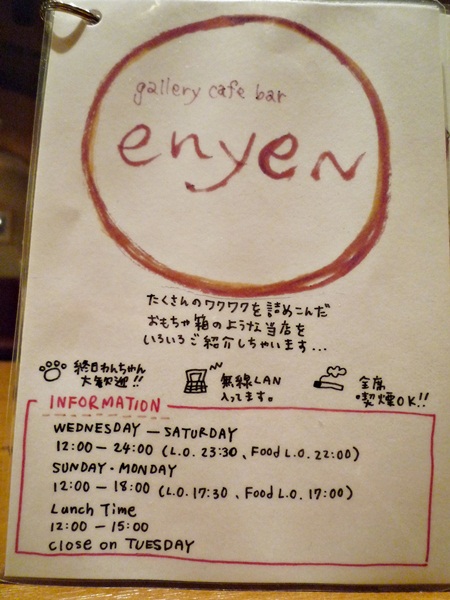 gallery cafe bar
enyen
たくさんのワクワクを詰めこんだ
おもちゃ箱のような当店を
いろいろご紹介しちゃいます...
終日わんちゃん
大歓迎!!
無線LAN
入ってます。
全席
喫煙OK!!
INFORMATION
WEDNESDAY — SATURDAY
12:00 — 24:00 (L.O. 23:30、Food L.O. 22:00)
SUNDAY・MONDAY
12:00 — 18:00 (L.O. 17:30、Food L.O. 17:00)
Lunch Time
12:00 — 15:00
Close on TUESDAY